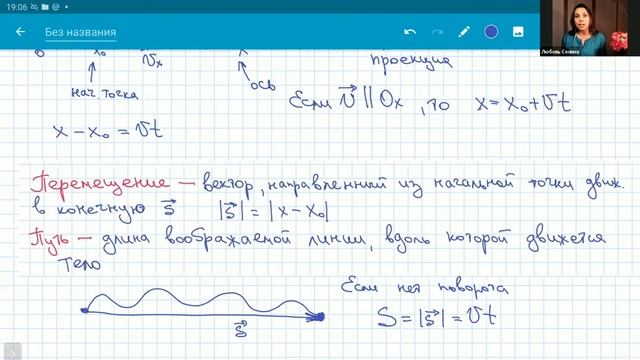 19:06
Без названия
Любовь Селина
x₀ v⃗ₓ x
проекция
нач. точка
ось
Если v⃗ || Ox, то x = x₀ + vt
x − x₀ = vt
Перемещение — вектор, направленный из начальной точки движ.
в конечную s⃗ |s⃗| = |x − x₀|
Путь — длина воображаемой линии, вдоль которой движется
тело
Если нет поворота
s⃗
S = |s⃗| = vt